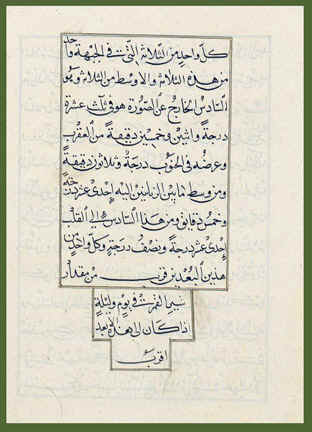 كل واحد من الثلاثة التي في الجبهة واحد
من هذه الثلاثة والاوسط من الثلاثة وهو
السادس الخارج عن الصورة هو في ثلث عشرة
درجة واثنين وخمسين دقيقة من العقرب
وعرضه في الجنوب درجة وثلاثون دقيقة
ومن وسط مابين الزبانين اليه احدى عشرة درجة
وخمس دقايق ومن هذا السادس الى القلب
احدى عشر درجة ونصف درجة وكل واحد من
هذين البعدين قريب من مقدار
سير القمر في يوم وليلة
اذا كان الى هذا البعد
اقرب